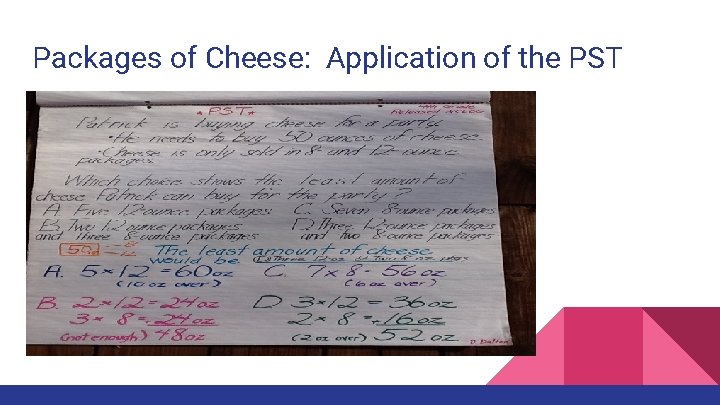 Packages of Cheese: Application of the PST
*PST*
4th Grade
Released
Patrick is buying cheese for a party
• He needs to buy 50 ounces of cheese.
• Cheese is only sold in 8 and 12 ounce
packages.
Which choice shows the least amount of
cheese Patrick can buy for the party?
A. Five 12 ounce packages C. Seven 8-ounce packages
B. Two 12 ounce packages D. Three 12-ounce packages
and three 8-ounce packages and two 8-ounce packages
The least amount of cheese
would be
A. 5 × 12 = 60 oz C. 7 × 8 = 56 oz
(10 oz over) (6 oz over)
B. 2 × 12 = 24 oz D 3 × 12 = 36 oz
3 × 8 = +24 oz 2 × 8 = +16 oz
(not enough) 48 oz (2 oz over) 52 oz
D. Dalton